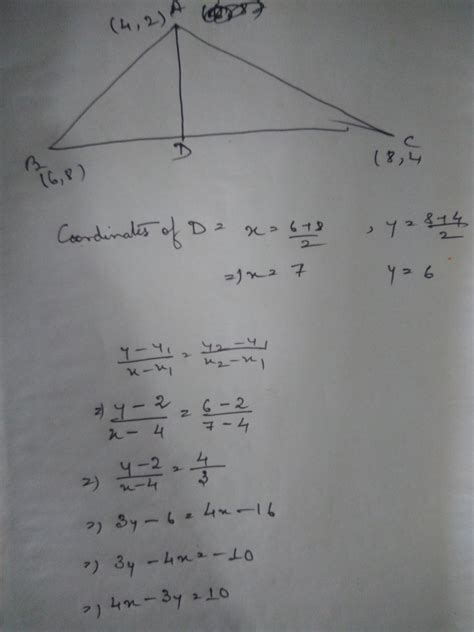 A
(4,2)
B
(6,8)
D
C
(8,4
Coordinates of D = x = 6+8/2 , y = 8+4/2
=) x = 7 y = 6
y-y₁/x-x₁ = y₂-y₁/x₂-x₁
=) y-2/x-4 = 6-2/7-4
=) y-2/x-4 = 4/3
=) 3y-6 = 4x-16
=) 3y-4x = -10
=) 4x-3y = 10